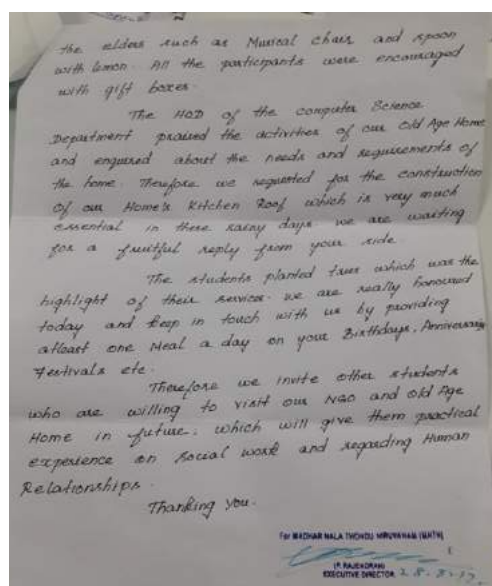 the elders such as Musical chair and spoon
with lemon. All the participants were encouraged
with gift boxes.
The HOD of the computer Science
Department praised the activities of our Old Age Home
and enquired about the needs and requirements of
the home. Therefore we requested for the construction
of our Home's Kitchen Roof which is very much
essential in these rainy days. we are waiting
for a fruitful reply from your side
The students planted trees which was the
highlight of their services. we are really honoured
today and keep in touch with us by providing
atleast one Meal a day on your Birthdays, Anniversary
Festivals etc.
Therefore we invite other students
who are willing to visit our NGO and old Age
Home in future, which will give them practical
experience on social work and regarding Human
Relationships.
Thanking you.
For MADHAR NALA THONDU NIRUVANAM (MNTN)
(P. RAJENDRAN)
EXECUTIVE DIRECTOR